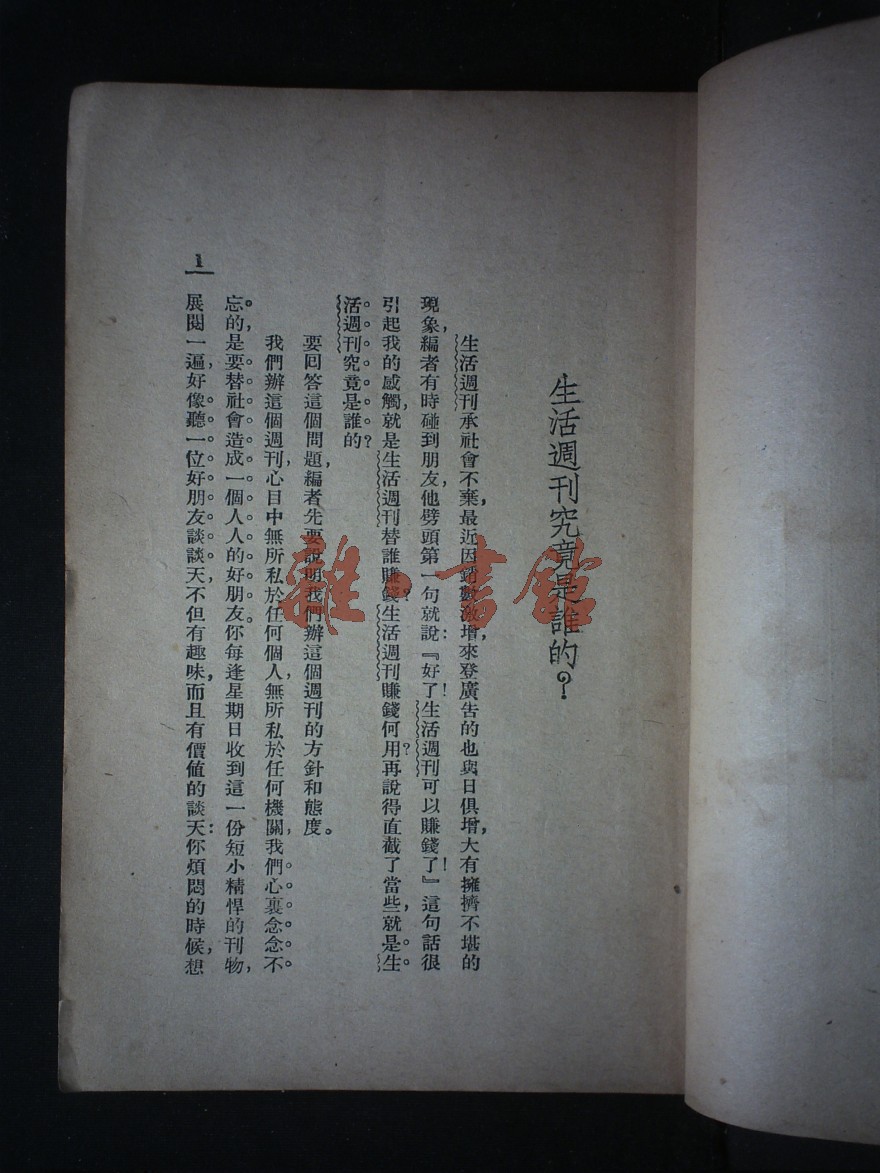 生活週刊究竟是誰的？
生活週刊承社會不棄，最近因銷數激增，來登廣告的也與日俱增，大有擁擠不堪的
現象，編者有時碰到朋友，他劈頭第一句就說：『好了！生活週刊可以賺錢了！』這句話很
引起我的感觸，就是生活週刊替誰賺錢？生活週刊賺錢何用？再說得直截了當些，就是生
活週刊究竟是誰的？
要回答這個問題，編者先要說明我們辦這個週刊的方針和態度。
我們辦這個週刊，心目中無所私於任何個人，無所私於任何機關，我們心裏念念不
忘的，是要替社會造成一個人人的好朋友。你每逢星期日收到這一份短小精悍的刊物，
展閱一遍，好像聽一位好朋友談談天，不但有趣味，而且有價值的談天：你煩悶的時候，想
1
雜·書館